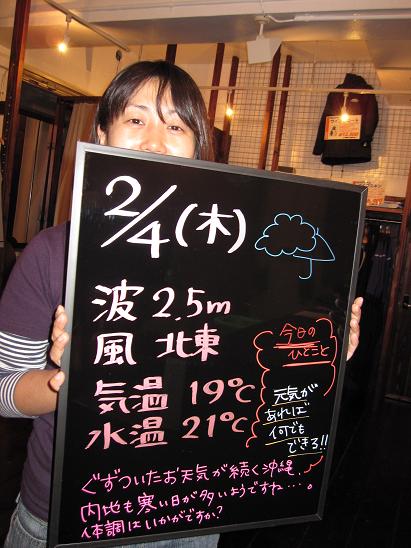 2/4(木)
波 2.5m
風 北東
気温 19℃
水温 21℃
今日の
ひとこと
元気が
あれば
何でも
できる!!
ぐずついたお天気が続く沖縄、
内地も寒い日が多いようですね…。
体調はいかがですか?